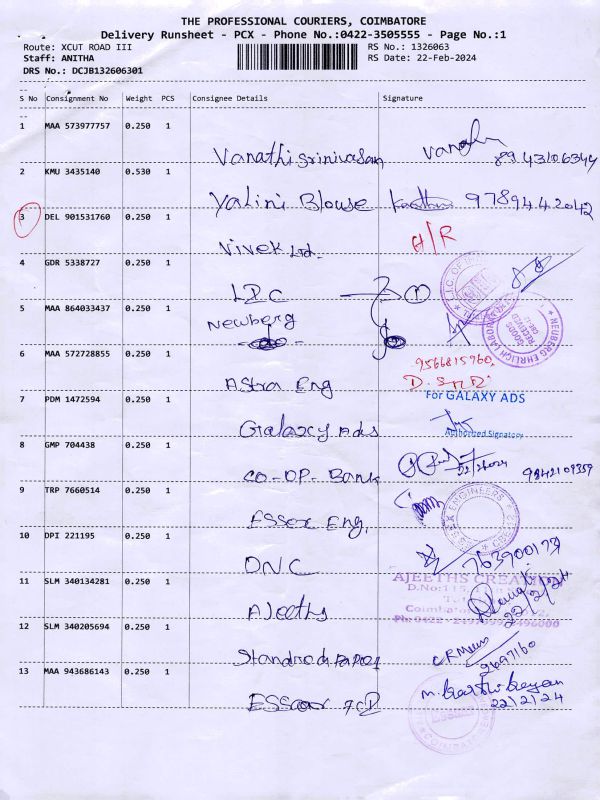 THE PROFESSIONAL COURIERS, COIMBATORE
Delivery Runsheet - PCX - Phone No.:0422-3505555 - Page No.:1
Route: XCUT ROAD III RS No.: 1326063
Staff: ANITHA RS Date: 22-Feb-2024
DRS No.: DCJB132606301
S No Consignment No Weight PCS Consignee Details Signature
1 MAA 573977757 0.250 1
Vanathi Srinivasan 8943106344
2 KMU 3435140 0.530 1
Yalini Blouse 9789442042
3 DEL 901531760 0.250 1
Vivek Ltd. A/R
4 GDR 5338727 0.250 1
LIC
5 MAA 864033437 0.250 1
Newberg
NEUBERG EHRLICH LABORATORY
GOODS RECEIVED
6 MAA 572728855 0.250 1
9566815960
Astra Eng
7 PDM 1472594 0.250 1
For GALAXY ADS
Galaxy Ads
Authorized Signatory
8 GMP 704438 0.250 1
22/2/2024
CO-OP-Bank 9842109359
9 TRP 7660514 0.250 1
ESSEX ENGINEERS
Essex Eng.
10 DPI 221195 0.250 1
DNC
AJEETHS
11 SLM 340134281 0.250 1
22/2/24
Ajeeths
12 SLM 340205694 0.250 1
2697160
13 MAA 943686143 0.250 1
m. Karthikeyan
22/2/24